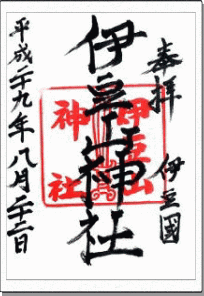 奉拝
伊豆國
伊豆山神社
伊豆山
神社
平成二十九年八月二十二日